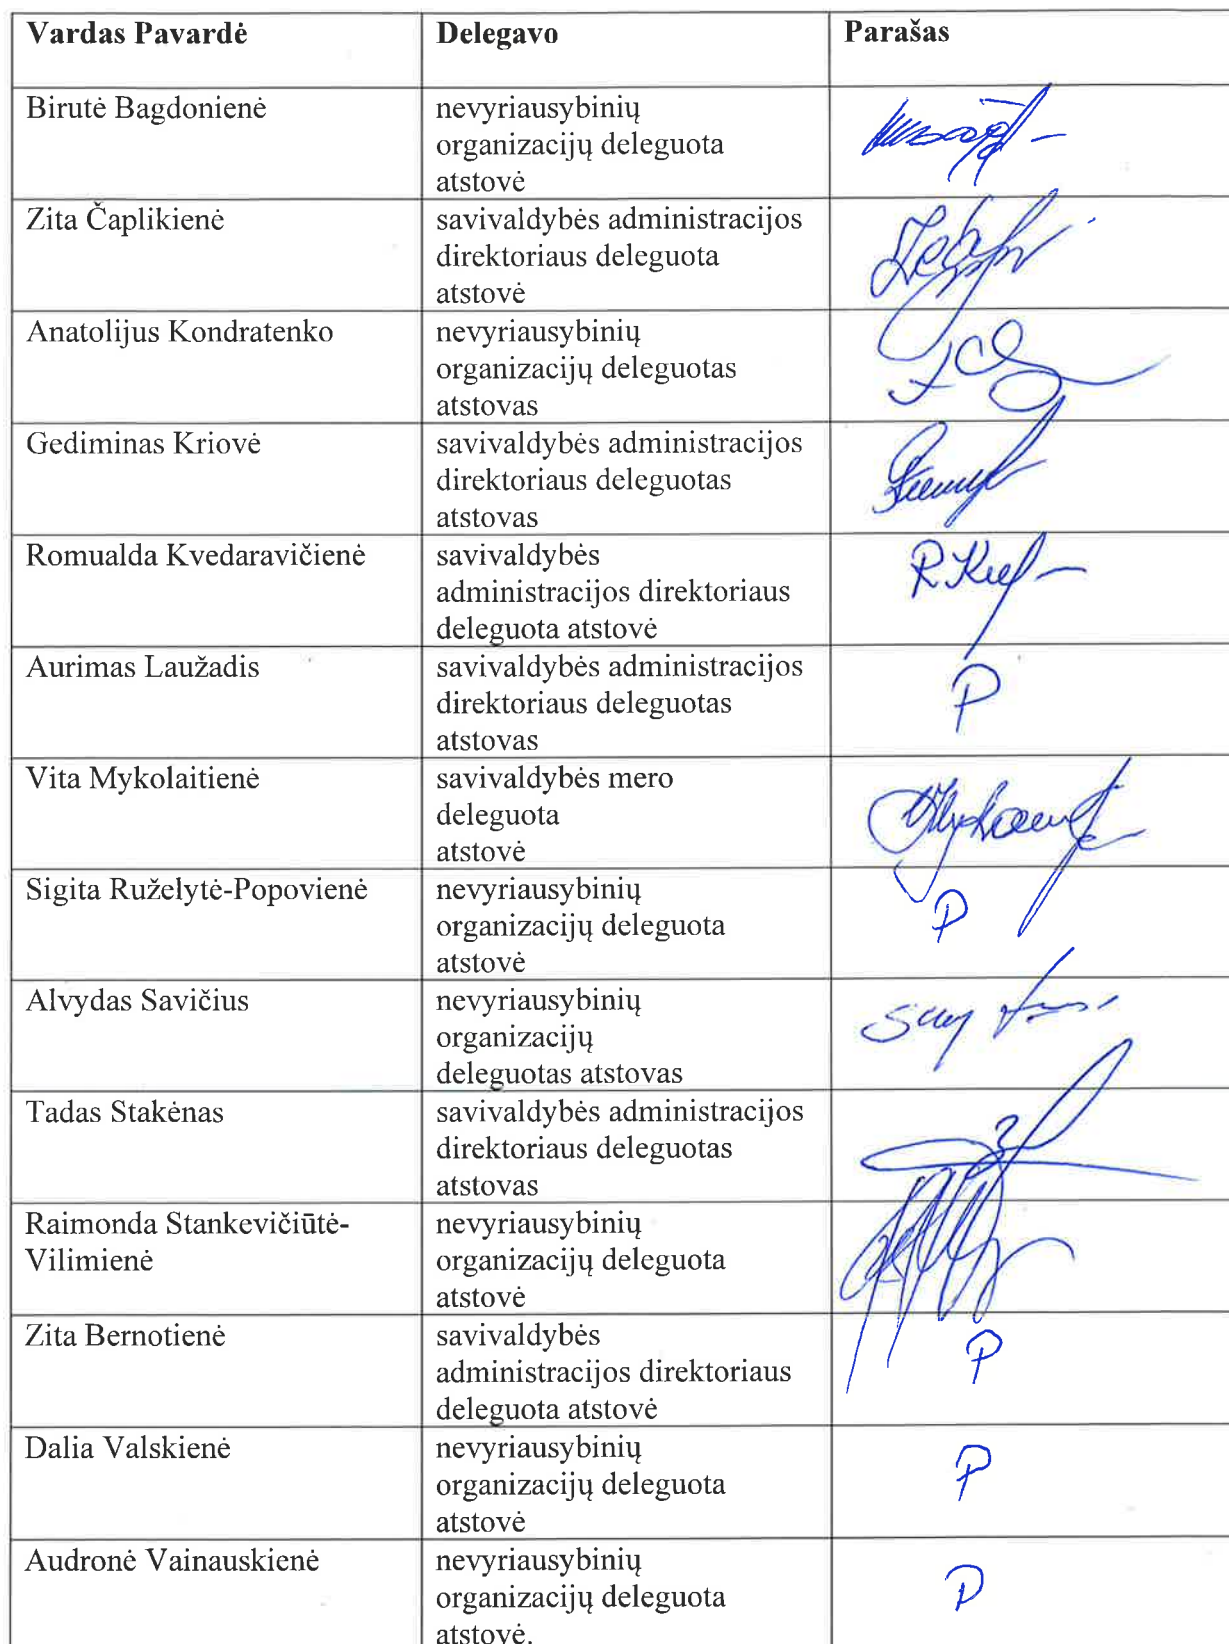 Vardas Pavardė Delegavo Parašas
Birutė Bagdonienė nevyriausybinių
organizacijų deleguota
atstovė
Zita Čaplikienė savivaldybės administracijos
direktoriaus deleguota
atstovė
Anatolijus Kondratenko nevyriausybinių
organizacijų deleguotas
atstovas
Gediminas Kriovė savivaldybės administracijos
direktoriaus deleguotas
atstovas
Romualda Kvedaravičienė savivaldybės
administracijos direktoriaus
deleguota atstovė
Aurimas Laužadis savivaldybės administracijos P
direktoriaus deleguotas
atstovas
Vita Mykolaitienė savivaldybės mero
deleguota
atstovė
Sigita Ruželytė-Popovienė nevyriausybinių P
organizacijų deleguota
atstovė
Alvydas Savičius nevyriausybinių
organizacijų
deleguotas atstovas
Tadas Stakėnas savivaldybės administracijos
direktoriaus deleguotas
atstovas
Raimonda Stankevičiūtė- nevyriausybinių
Vilimienė organizacijų deleguota
atstovė
Zita Bernotienė savivaldybės P
administracijos direktoriaus
deleguota atstovė
Dalia Valskienė nevyriausybinių P
organizacijų deleguota
atstovė
Audronė Vainauskienė nevyriausybinių P
organizacijų deleguota
atstovė.